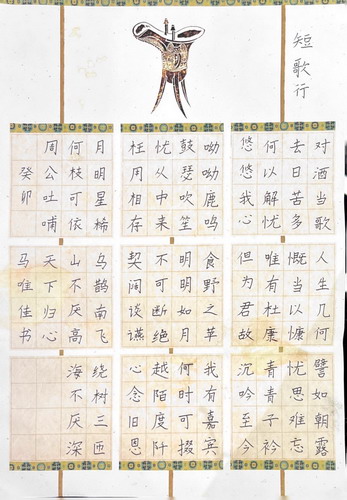 短歌行
对酒当歌人生几何譬如朝露
去日苦多慨当以慷忧思难忘
何以解忧唯有杜康青青子衿
悠悠我心但为君故沉吟至今
呦呦鹿鸣食野之苹我有嘉宾
鼓瑟吹笙明明如月何时可掇
忧从中来不可断绝越陌度阡
枉用相存契阔谈讌心念旧恩
月明星稀乌鹊南飞绕树三匝
何枝可依山不厌高海不厌深
周公吐哺天下归心
癸卯马唯佳书